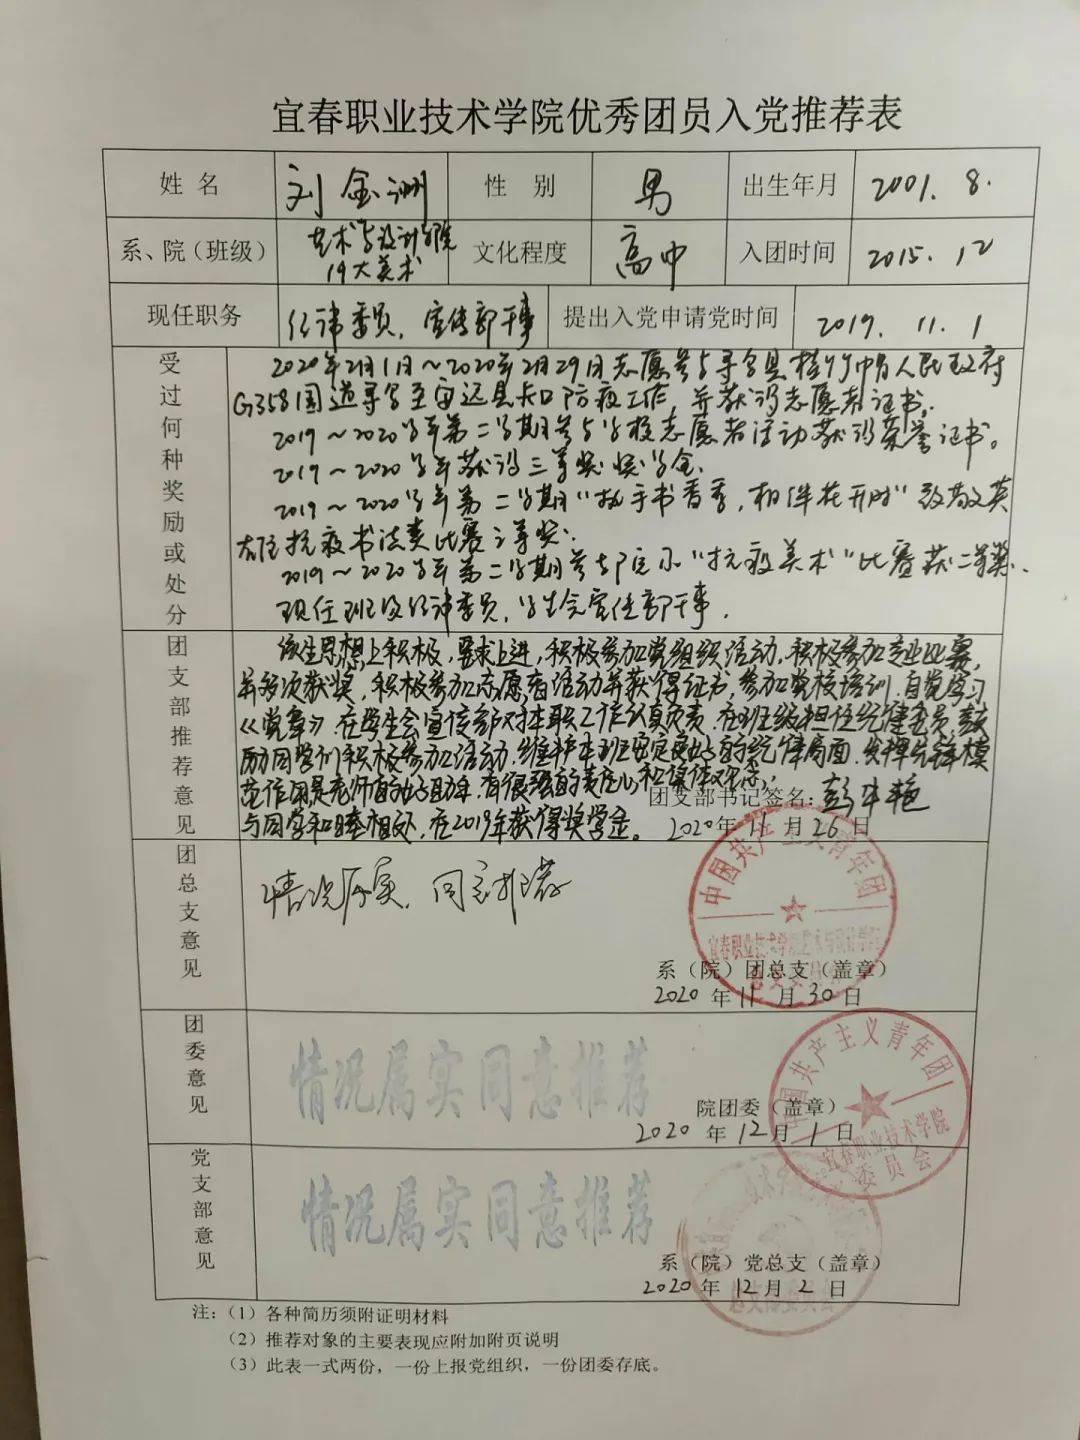 宜春职业技术学院优秀团员入党推荐表
姓 名 刘金洲 性 别 男 出生年月 2001.8.
系、院（班级） 艺术与设计学院 19大美术 文化程度 高中 入团时间 2015.12
现任职务 纪律委员，宣传部干事 提出入党申请党时间 2019.11.1
受过何种奖励或处分
2020年2月1日～2020年2月29日志愿参与寻乌县桂竹帽镇人民政府
G358国道寻乌至安远县卡口防疫工作，并获得志愿者证书。
2019～2020学年第二学期参与学校志愿者活动获得荣誉证书。
2019～2020学年获得三等奖奖学金。
2019～2020学年第二学期“执手书香季，相伴花开时”致敬英
雄抗疫书法类比赛三等奖。
2019～2020学年第二学期参与院系“抗疫美术”比赛获二等奖。
现任班级纪律委员，学生会宣传部干事。
团支部推荐意见
该生思想上积极，要求上进，积极参加党组织活动，积极参加专业比赛，
并多次获奖，积极参加志愿者活动并获得证书，参加党校培训，自觉学习
《党章》，在学生会宣传部对本职工作认真负责，在班级担任纪律委员，鼓
励同学们积极参加活动，维护本班稳定良好的纪律局面，发挥先锋模
范作用是老师的好助手，有很强的责任心和集体观念，
团支部书记签名：彭
与同学和睦相处，在2019年获得奖学金。 2020年11月26日
团总支意见
情况属实，同意推荐
中国共产主义青年团
宜春职业技术学院艺术与设计学院
总支委员会
系（院）团总支（盖章）
2020年11月30日
团委意见
情况属实同意推荐
中国共产主义青年团
宜春职业技术学院
委员会
院团委（盖章）
2020年12月1日
党支部意见
情况属实同意推荐
总支部委员会
系（院）党总支（盖章）
2020年12月2日
注：（1）各种简历须附证明材料
（2）推荐对象的主要表现应附加附页说明
（3）此表一式两份，一份上报党组织，一份团委存底。